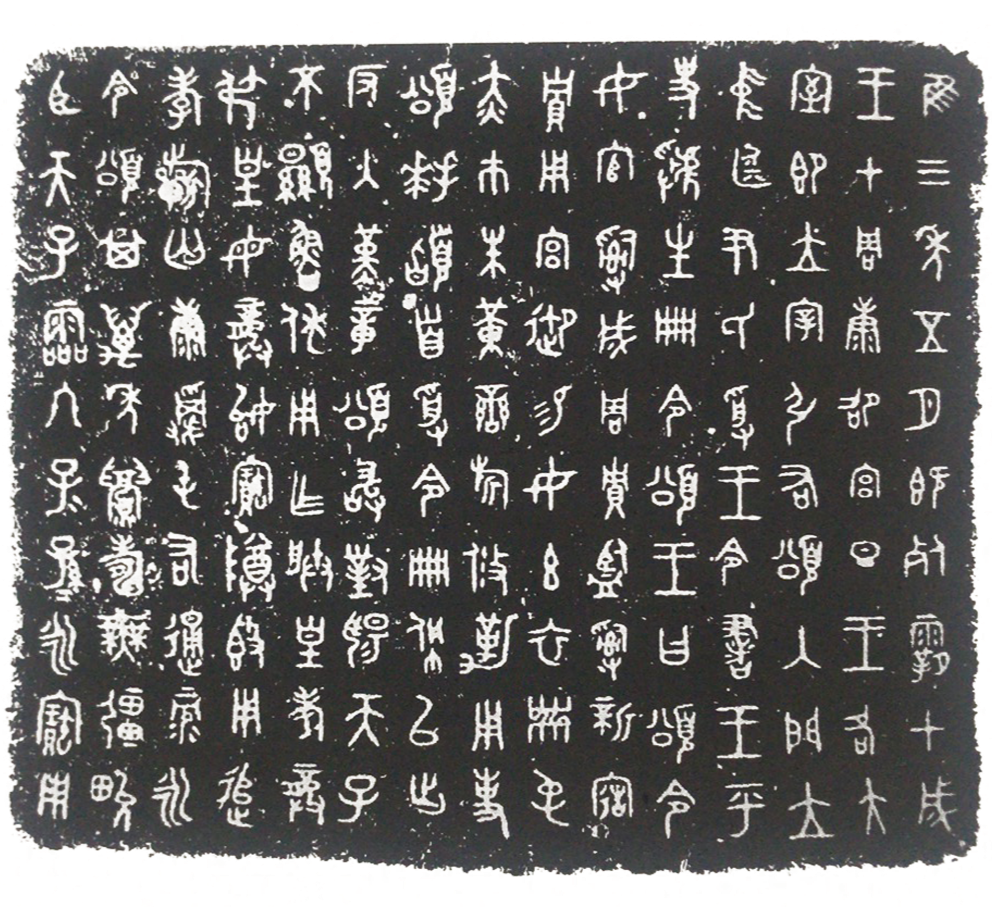 隹三年五月既死霸甲戌
王才周康卲宮旦王各大
室即立宰引右頌入門立
中廷尹氏受王令書王乎
史虢生冊令頌王曰頌令
女官𤔲成周貯監𤔲新造
貯用宮御易女玄衣黹屯
赤巿朱黃䜌旂攸勒用事
頌拜𩒨首受令冊佩以出
反入堇章頌敢對揚天子
不顯魯休用乍朕皇考龏
弔皇母龏始寶尊鼎用追
孝祈匄康𠣎屯右通彔永
令頌其萬年眉壽無疆畯
臣天子霝冬子孫永寶用